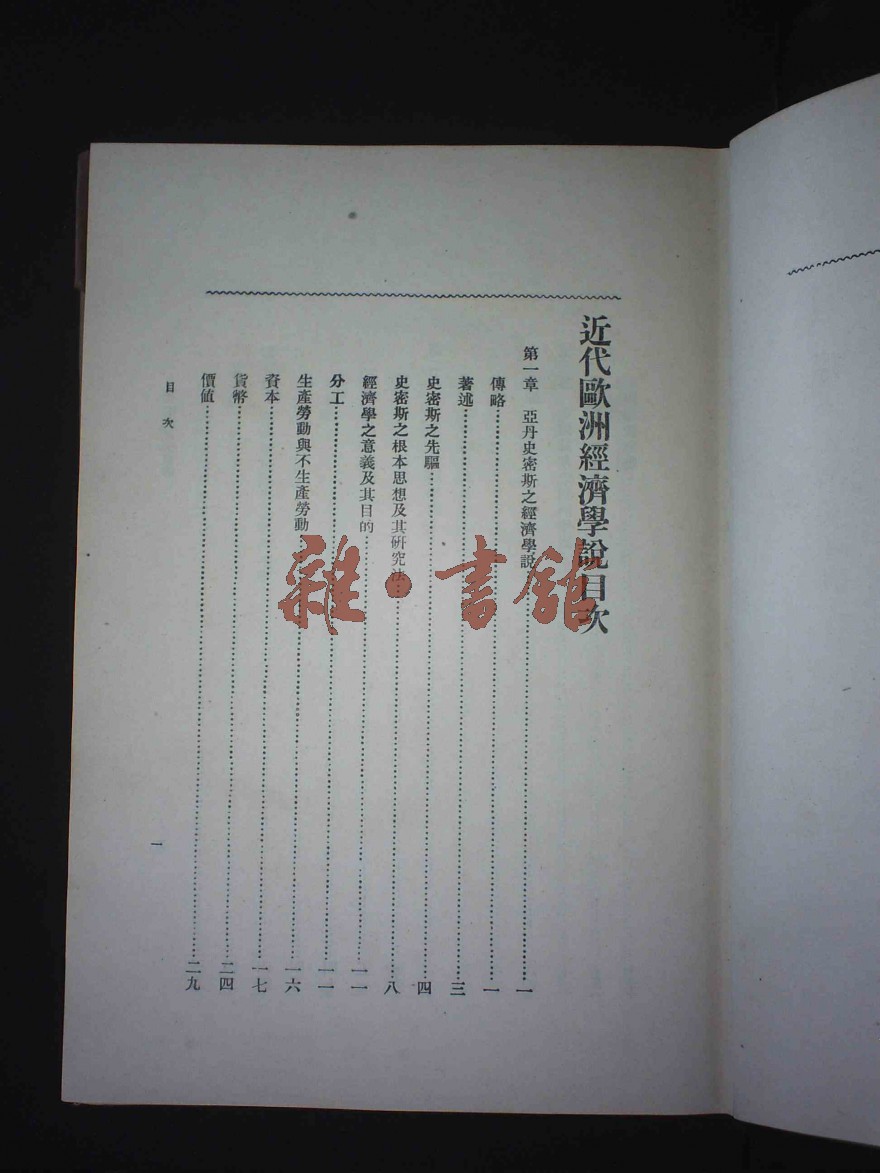 近代歐洲經濟學說目次
第一章　亞丹史密斯之經濟學說……一
傳略……一
著述……三
史密斯之先驅……四
史密斯之根本思想及其研究法……八
經濟學之意義及其目的……一一
分工……一一
生產勞動與不生產勞動……一六
資本……一七
貨幣……二四
價値……二九
目次
一
雜·書館